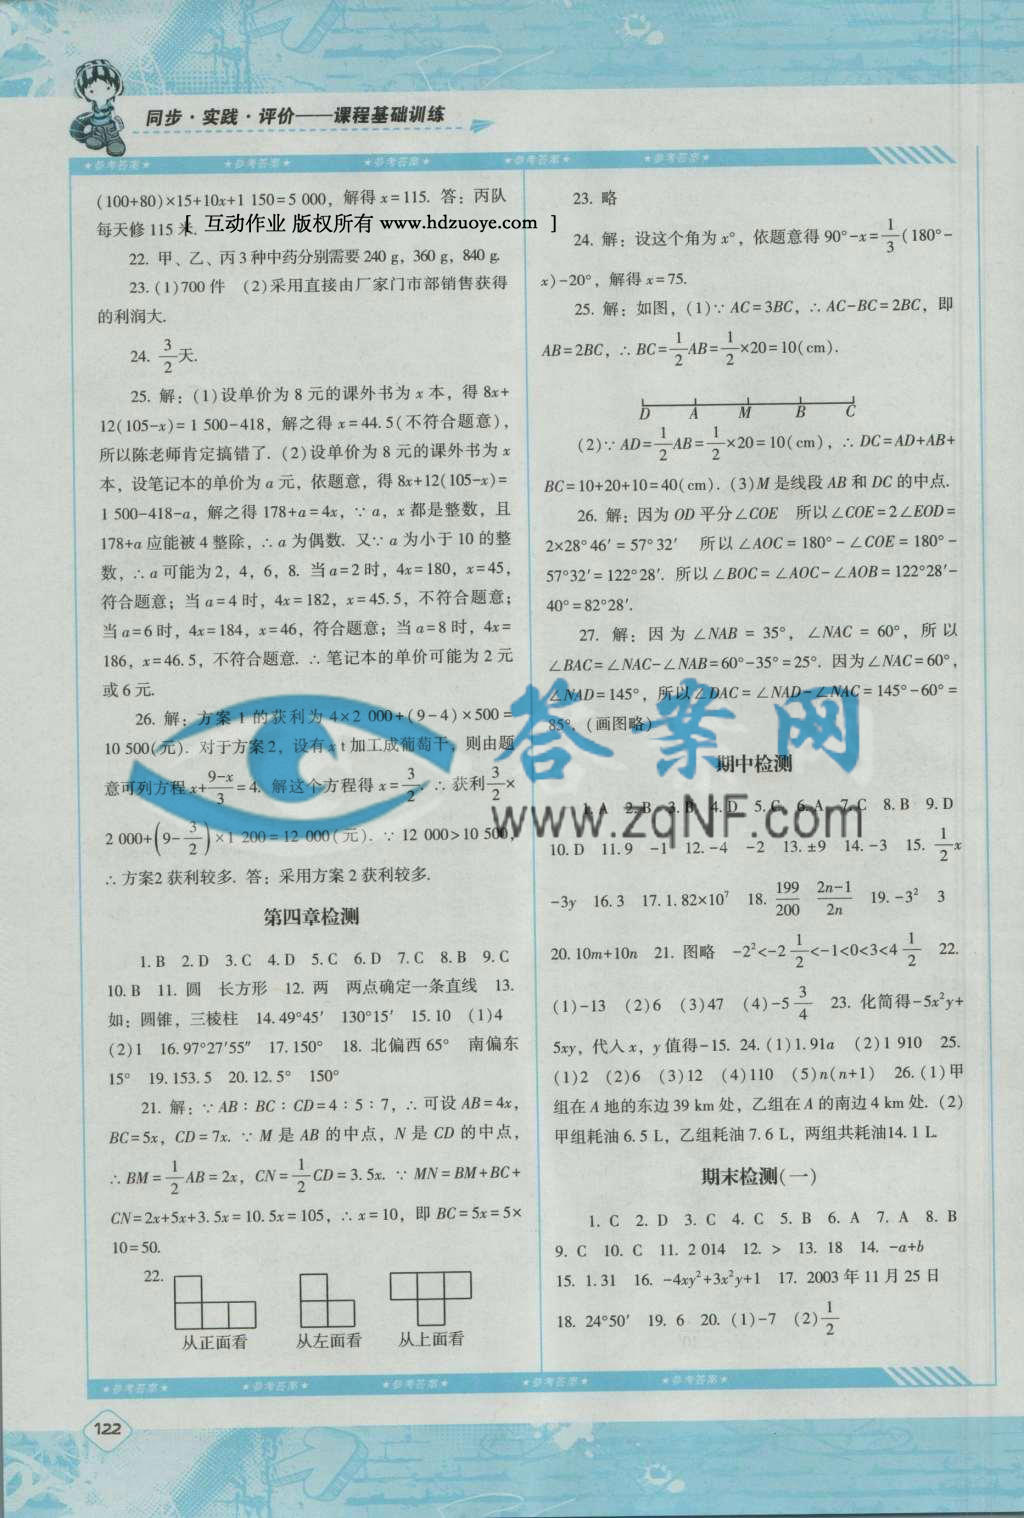 同步·实践·评价——课程基础训练
★参考答案★ ★参考答案★ ★参考答案★ ★参考答案★ ★参考答案★
(100+80)×15+10x+1 150=5 000，解得 x=115. 答：丙队
每天修 115 米.
[ 互动作业 版权所有 www.hdzuoye.com ]
22. 甲、乙、丙 3 种中药分别需要 240 g，360 g，840 g.
23. (1)700 件 (2)采用直接由厂家门市部销售获得
的利润大.
24. 3/2天.
25. 解：(1)设单价为 8 元的课外书为 x 本，得 8x+
12(105-x)=1 500-418，解之得 x=44.5(不符合题意)，
所以陈老师肯定搞错了. (2)设单价为 8 元的课外书为 x
本，设笔记本的单价为 a 元，依题意，得 8x+12(105-x)=
1 500-418-a，解之得 178+a=4x，∵ a，x 都是整数，且
178+a 应能被 4 整除，∴ a 为偶数. 又∵ a 为小于 10 的整
数，∴ a 可能为 2，4，6，8. 当 a=2 时，4x=180，x=45，
符合题意；当 a=4 时，4x=182，x=45.5，不符合题意；
当 a=6 时，4x=184，x=46，符合题意；当 a=8 时，4x=
186，x=46.5，不符合题意. ∴ 笔记本的单价可能为 2 元
或 6 元.
26. 解：方案 1 的获利为 4×2 000+(9-4)×500=
10 500(元). 对于方案 2，设有 x t 加工成葡萄干，则由题
意可列方程 x+(9-x)/3=4. 解这个方程得 x=3/2. ∴ 获利3/2×
2 000+(9-3/2)×1 200=12 000(元). ∵ 12 000>10 500，
∴ 方案2 获利较多. 答：采用方案 2 获利较多.
第四章检测
1. B 2. D 3. C 4. D 5. C 6. D 7. C 8. B 9. C
10. B 11. 圆 长方形 12. 两 两点确定一条直线 13.
如：圆锥，三棱柱 14. 49°45′ 130°15′ 15. 10 (1)4
(2)1 16. 97°27′55″ 17. 150° 18. 北偏西 65° 南偏东
15° 19. 153.5 20. 12.5° 150°
21. 解：∵ AB∶BC∶CD=4∶5∶7，∴ 可设 AB=4x，
BC=5x，CD=7x. ∵ M 是 AB 的中点，N 是 CD 的中点，
∴ BM=1/2AB=2x，CN=1/2CD=3.5x. ∵ MN=BM+BC+
CN=2x+5x+3.5x=10.5x=105，∴ x=10，即 BC=5x=5×
10=50.
22.
从正面看 从左面看 从上面看
23. 略
24. 解：设这个角为 x°，依题意得 90°-x=1/3(180°-
x)-20°，解得 x=75.
25. 解：如图，(1)∵ AC=3BC，∴ AC-BC=2BC，即
AB=2BC，∴ BC=1/2AB=1/2×20=10(cm).
D A M B C
(2)∵ AD=1/2AB=1/2×20=10(cm)，∴ DC=AD+AB+
BC=10+20+10=40(cm). (3)M 是线段 AB 和 DC 的中点.
26. 解：因为 OD 平分∠COE 所以∠COE=2∠EOD=
2×28°46′=57°32′ 所以∠AOC=180°-∠COE=180°-
57°32′=122°28′. 所以∠BOC=∠AOC-∠AOB=122°28′-
40°=82°28′.
27. 解：因为∠NAB=35°，∠NAC=60°，所以
∠BAC=∠NAC-∠NAB=60°-35°=25°. 因为∠NAC=60°，
∠NAD=145°，所以∠DAC=∠NAD-∠NAC=145°-60°=
85°. (画图略)
答案网
www.zqNF.com
期中检测
1. A 2. B 3. B 4. D 5. C 6. A 7. C 8. B 9. D
10. D 11. 9 -1 12. -4 -2 13. ±9 14. -3 15. 1/2x
-3y 16. 3 17. 1.82×10⁷ 18. 199/200 (2n-1)/2n 19. -3² 3
20. 10m+10n 21. 图略 -2²<-2 1/2<-1<0<3<4 1/2 22.
(1)-13 (2)6 (3)47 (4)-5 3/4 23. 化简得-5x²y+
5xy，代入 x，y 值得-15. 24. (1)1.91a (2)1 910 25.
(1)2 (2)6 (3)12 (4)110 (5)n(n+1) 26. (1)甲
组在 A 地的东边 39 km 处，乙组在 A 的南边 4 km 处. (2)
甲组耗油 6.5 L，乙组耗油 7.6 L，两组共耗油14.1 L.
期末检测(一)
1. C 2. D 3. C 4. C 5. B 6. A 7. A 8. B
9. C 10. C 11. 2 014 12. > 13. 18 14. -a+b
15. 1.31 16. -4xy²+3x²y+1 17. 2003 年 11 月 25 日
18. 24°50′ 19. 6 20. (1)-7 (2)1/2
★参考答案★ ★参考答案★ ★参考答案★ ★参考答案★ ★参考答案★
122